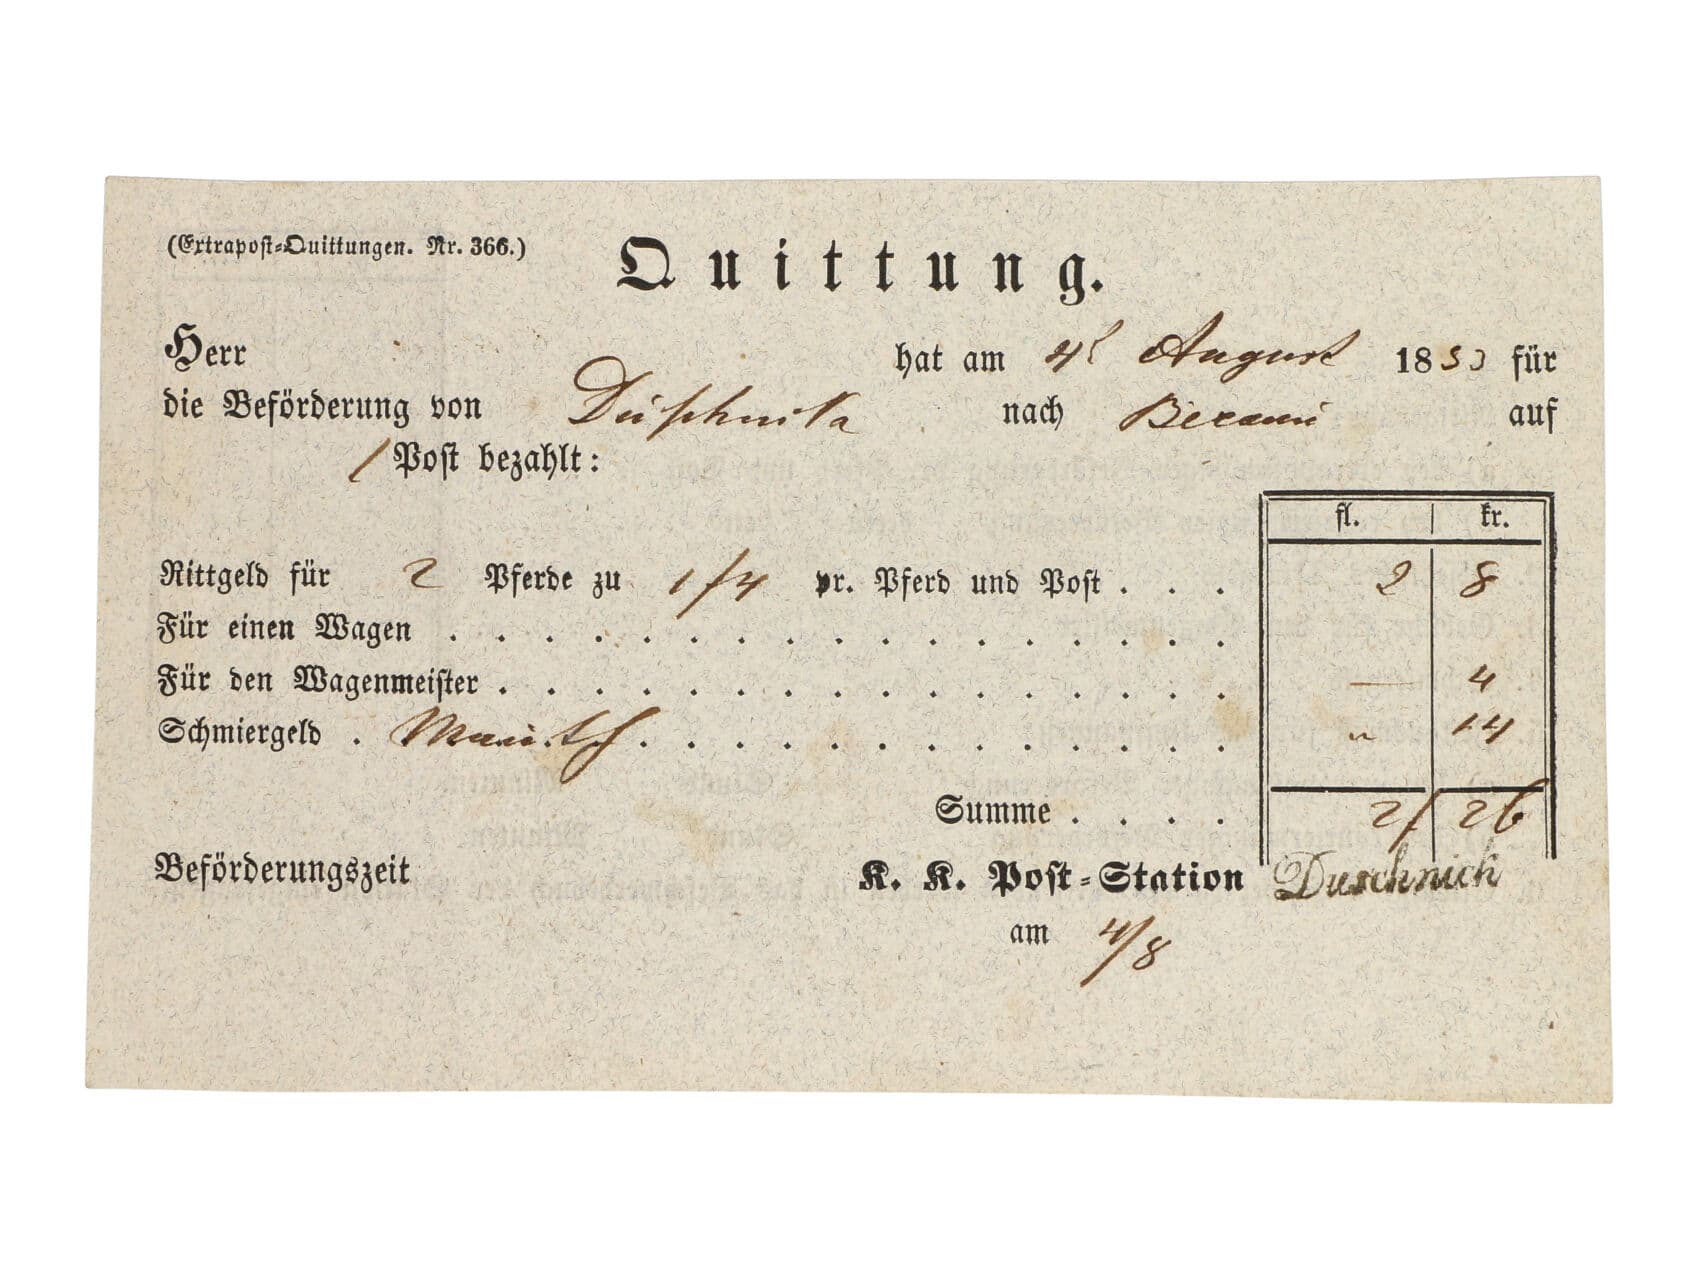 (Extrapost-Quittungen. Nr. 366.)
Quittung.
Herr hat am 4t August 1850 für
die Beförderung von Duschnik nach Beraun auf
1 Post bezahlt:
fl. kr.
Rittgeld für 2 Pferde zu 1/4 pr. Pferd und Post . . . 2 8
Für einen Wagen
Für den Wagenmeister — 4
Schmiergeld . Mauth " 14
Summe . . . . 2/ 26
Beförderungszeit K. K. Post-Station Duschnick
am 4/8